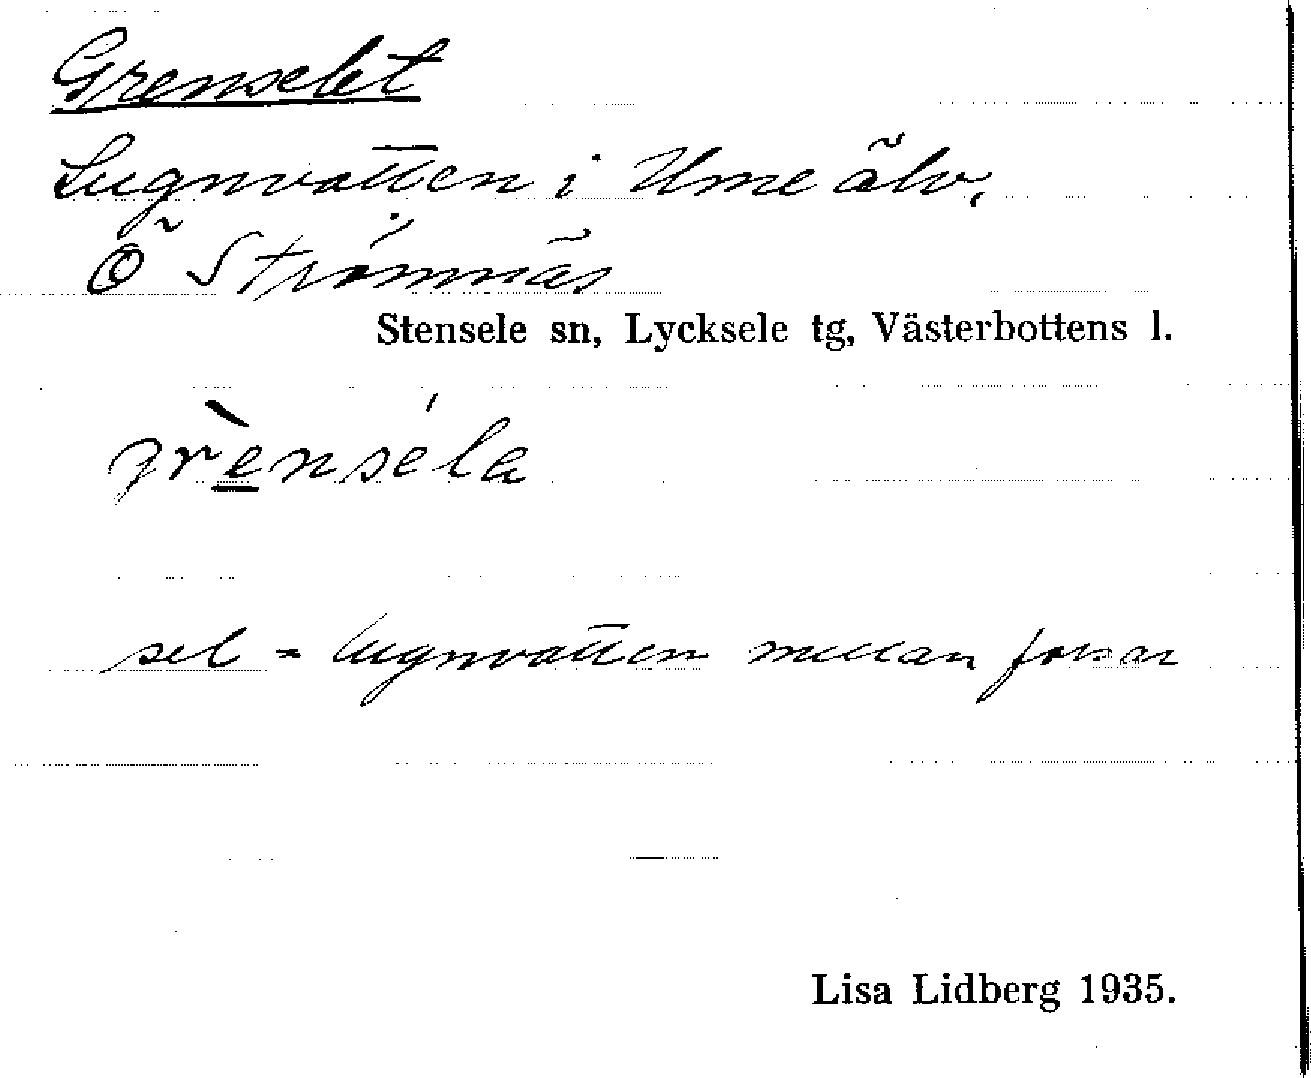 Grenselet
Lugnvatten i Ume älv,
Ö Strömnäs
Stensele sn, Lycksele tg, Västerbottens l.
grènséla
sel = lugnvatten mellan forsar
Lisa Lidberg 1935.